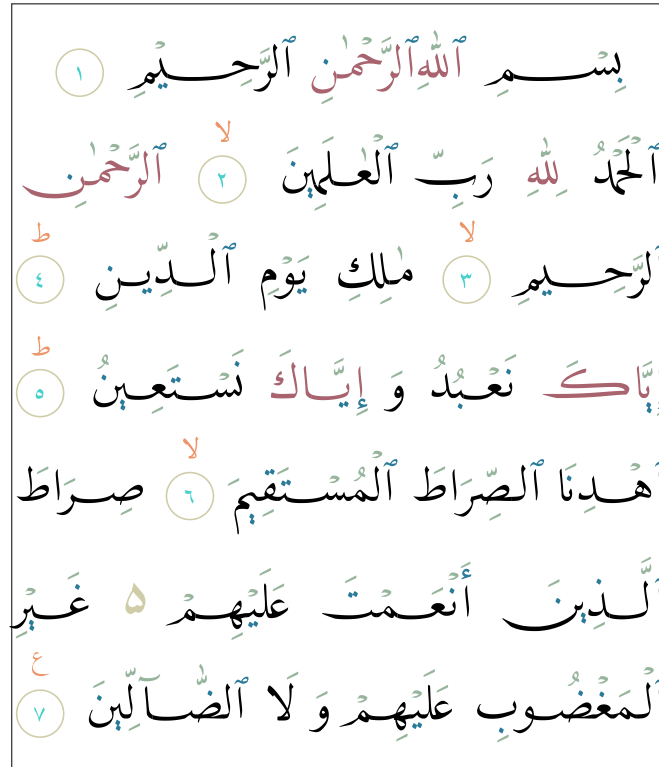 بِسْمِ ٱللّٰهِ ٱلرَّحْمٰنِ ٱلرَّحِيْمِ ١
ٱلْحَمْدُ لِلّٰهِ رَبِّ ٱلْعٰلَمِيْنَ ٢ لا ٱلرَّحْمٰنِ
ٱلرَّحِيمِ ٣ لا مٰلِكِ يَوْمِ ٱلْدِّينِ ٤ ط
إِيَّاكَ نَعْبُدُ وَ إِيَّاكَ نَسْتَعِينُ ٥ ط
ٱهْدِنَا ٱلصِّرَاطَ ٱلْمُسْتَقِيْمَ ٦ لا صِرَاطَ
ٱلَّذِينَ أَنْعَمْتَ عَلَيْهِمْ ۵ غَيْرِ
ٱلْمَغْضُوبِ عَلَيْهِمْ وَ لَا ٱلضَّآلِّيْنَ ٧ ع